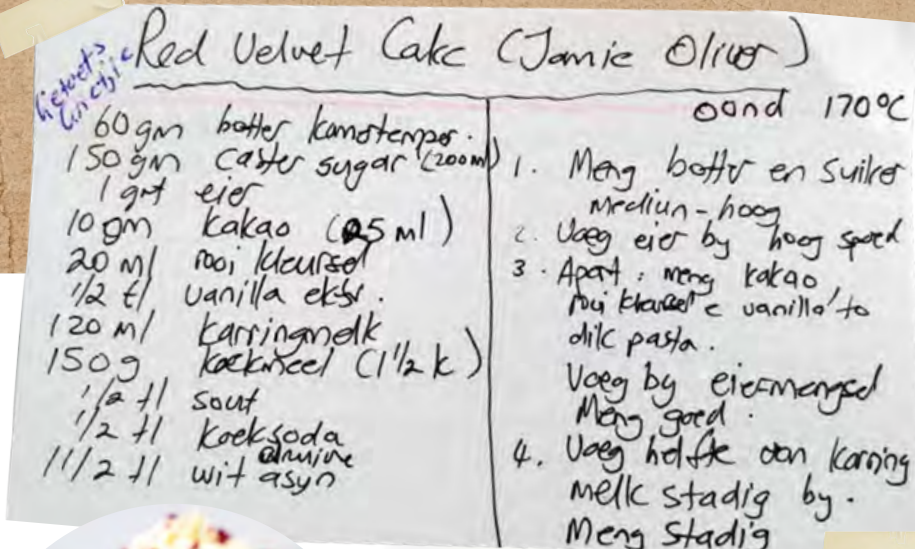 Red Velvet Cake (Jamie Oliver)
60 gm botter kamertemper.
150 gm caster sugar (200ml)
1 grt eier
10 gm kakao (25 ml)
20 ml rooi kleursel
1/2 tl vanilla ekstr.
120 ml karringmelk
150 g koekmeel (1 1/2 k)
1/2 tl sout
1/2 tl koeksoda
1 1/2 tl wit asyn
oond 170°C
1. Meng botter en suiker
Medium-hoog
2. Voeg eier by hoog spoed
3. Apart: meng kakao,
rooi kleursel e vanilla to
dik pasta.
Voeg by eiermengsel
Meng goed.
4. Voeg helfte van karring
melk stadig by.
Meng stadig